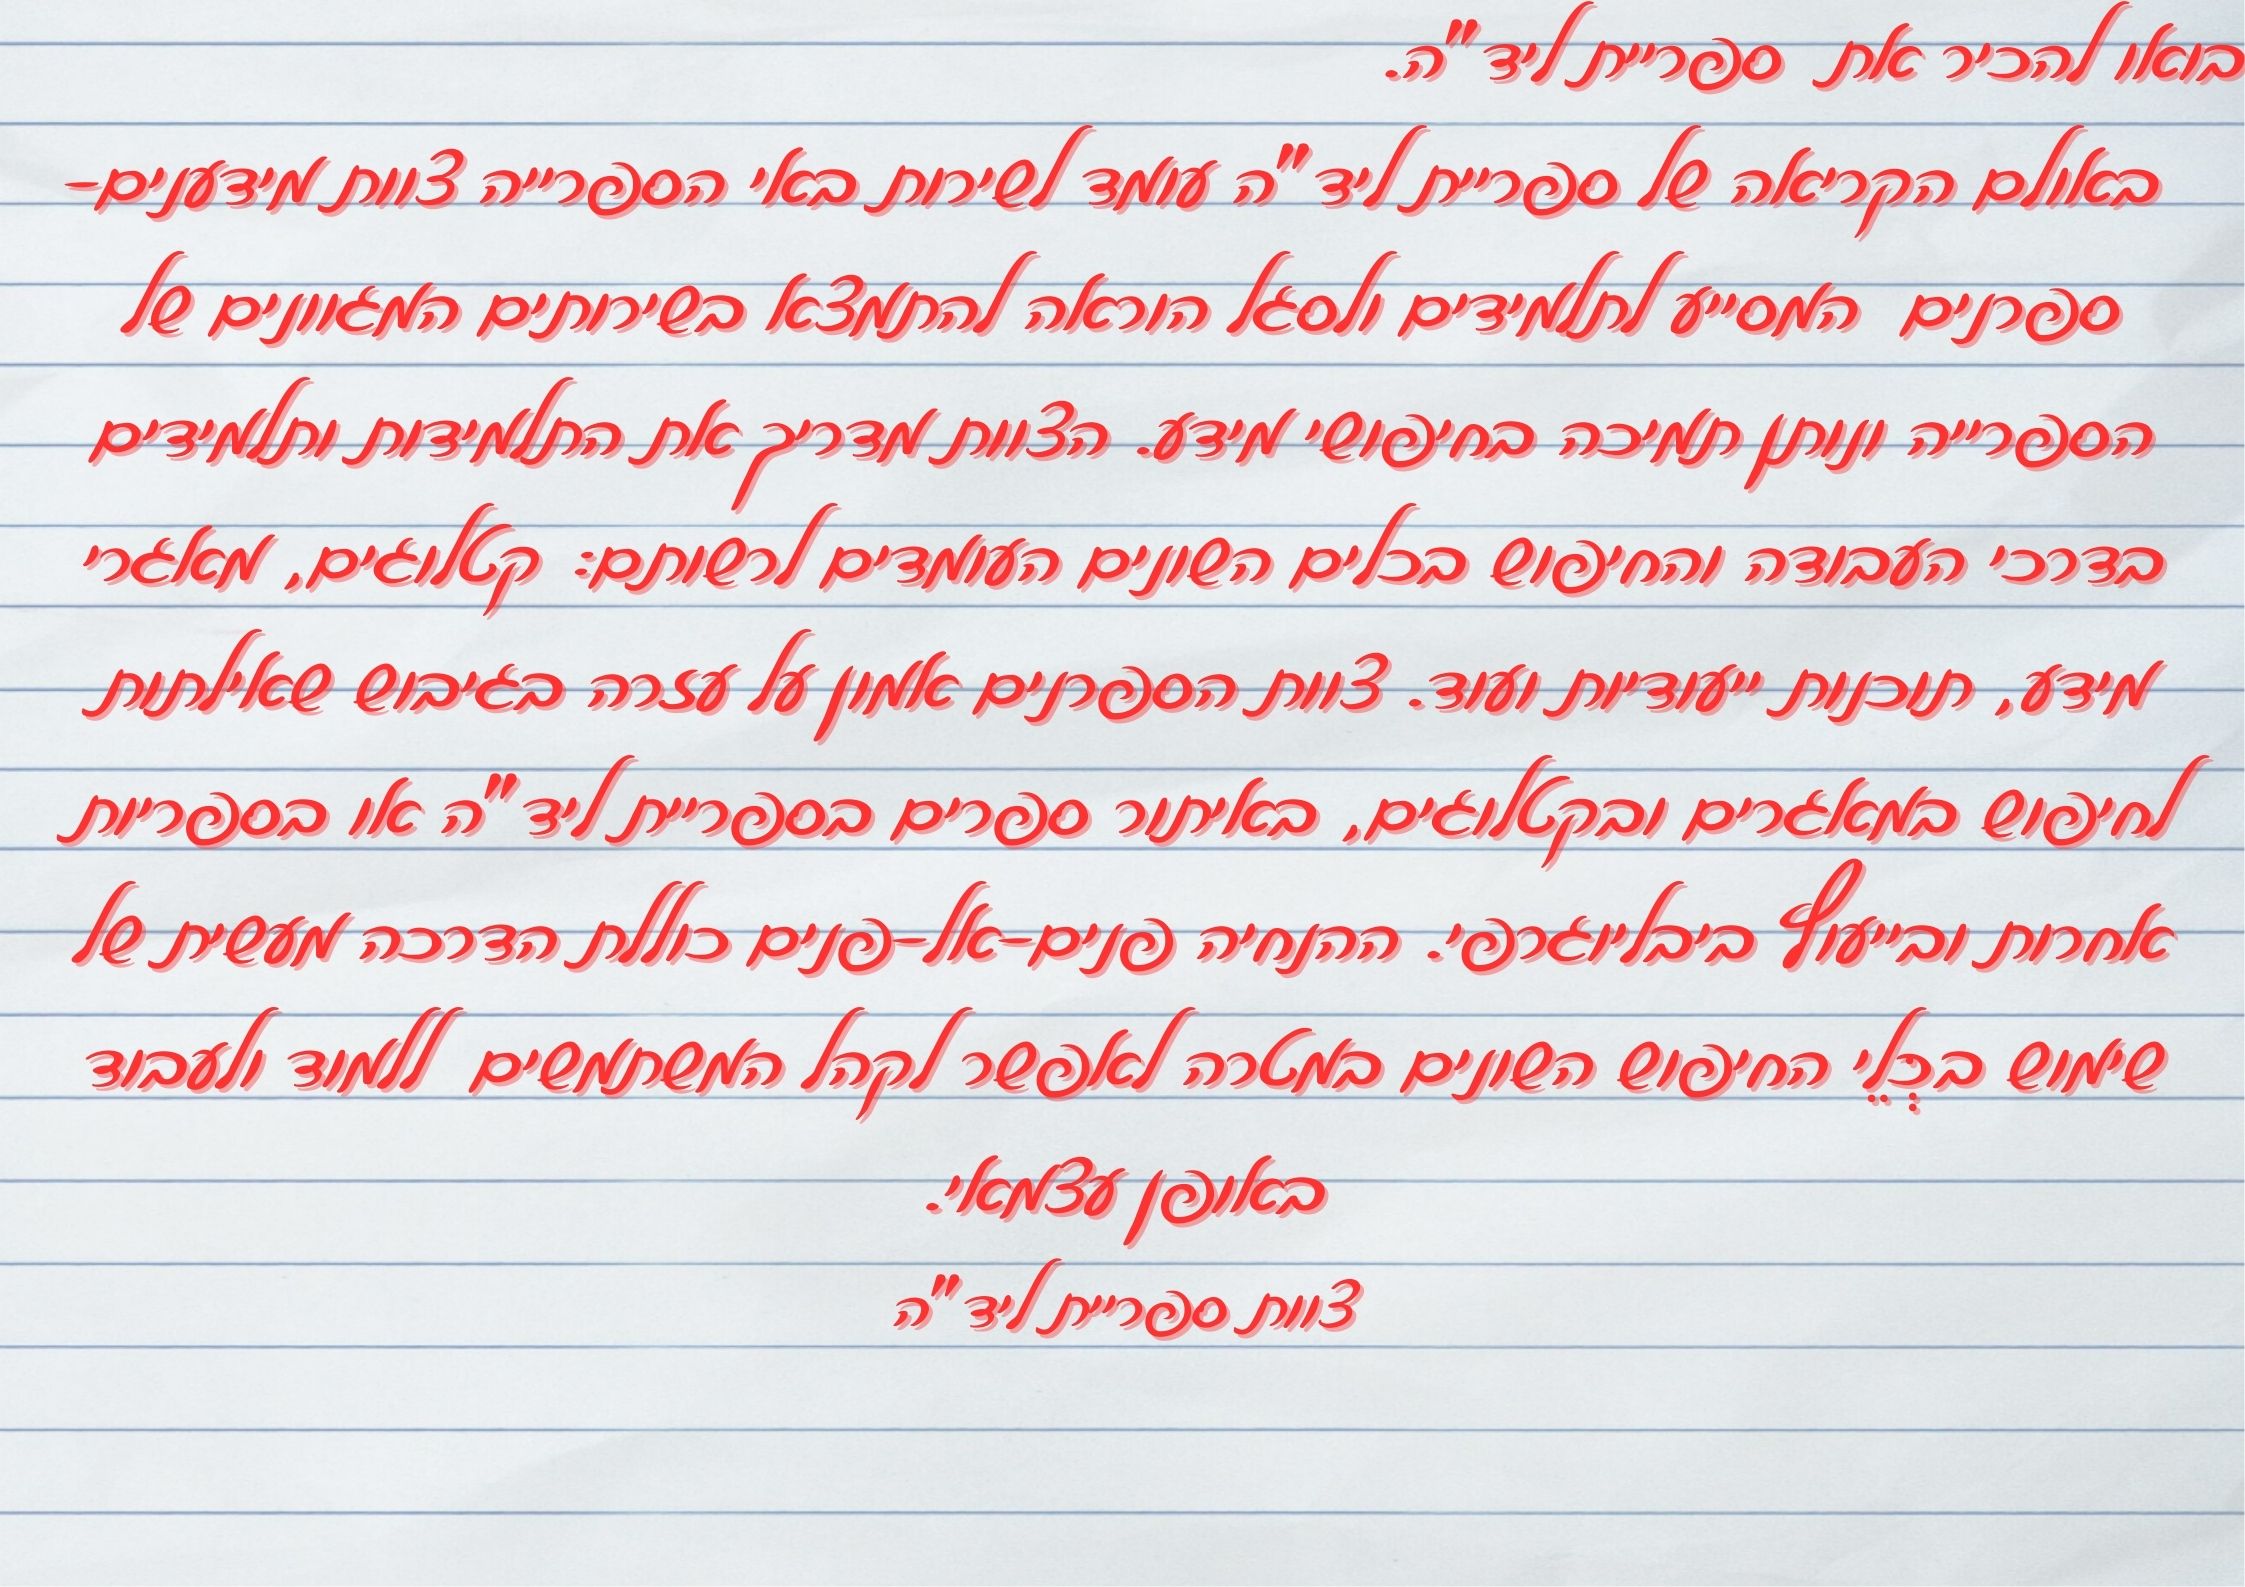 בואו להכיר את ספריית ליד"ה.
באולם הקריאה של ספריית ליד"ה עומד לשירות באי הספרייה צוות מידענים-
ספרנים המסייע לתלמידים ולסגל הוראה להתמצא בשירותים המגוונים של
הספרייה ונותן תמיכה בחיפושי מידע. הצוות מדריך את התלמידות ותלמידים
בדרכי העבודה והחיפוש בכלים השונים העומדים לרשותם: קטלוגים, מאגרי
מידע, תוכנות ייעודיות ועוד. צוות הספרנים אמון על עזרה בגיבוש שאילתות
לחיפוש במאגרים ובקטלוגים, באיתור ספרים בספריית ליד"ה או בספריות
אחרות ובייעוץ ביבליוגרפי. ההנחיה פנים-אל-פנים כוללת הדרכה מעשית של
שימוש בכְּלֵי החיפוש השונים במטרה לאפשר לקהל המשתמשים ללמוד ולעבוד
באופן עצמאי.
צוות ספריית ליד"ה